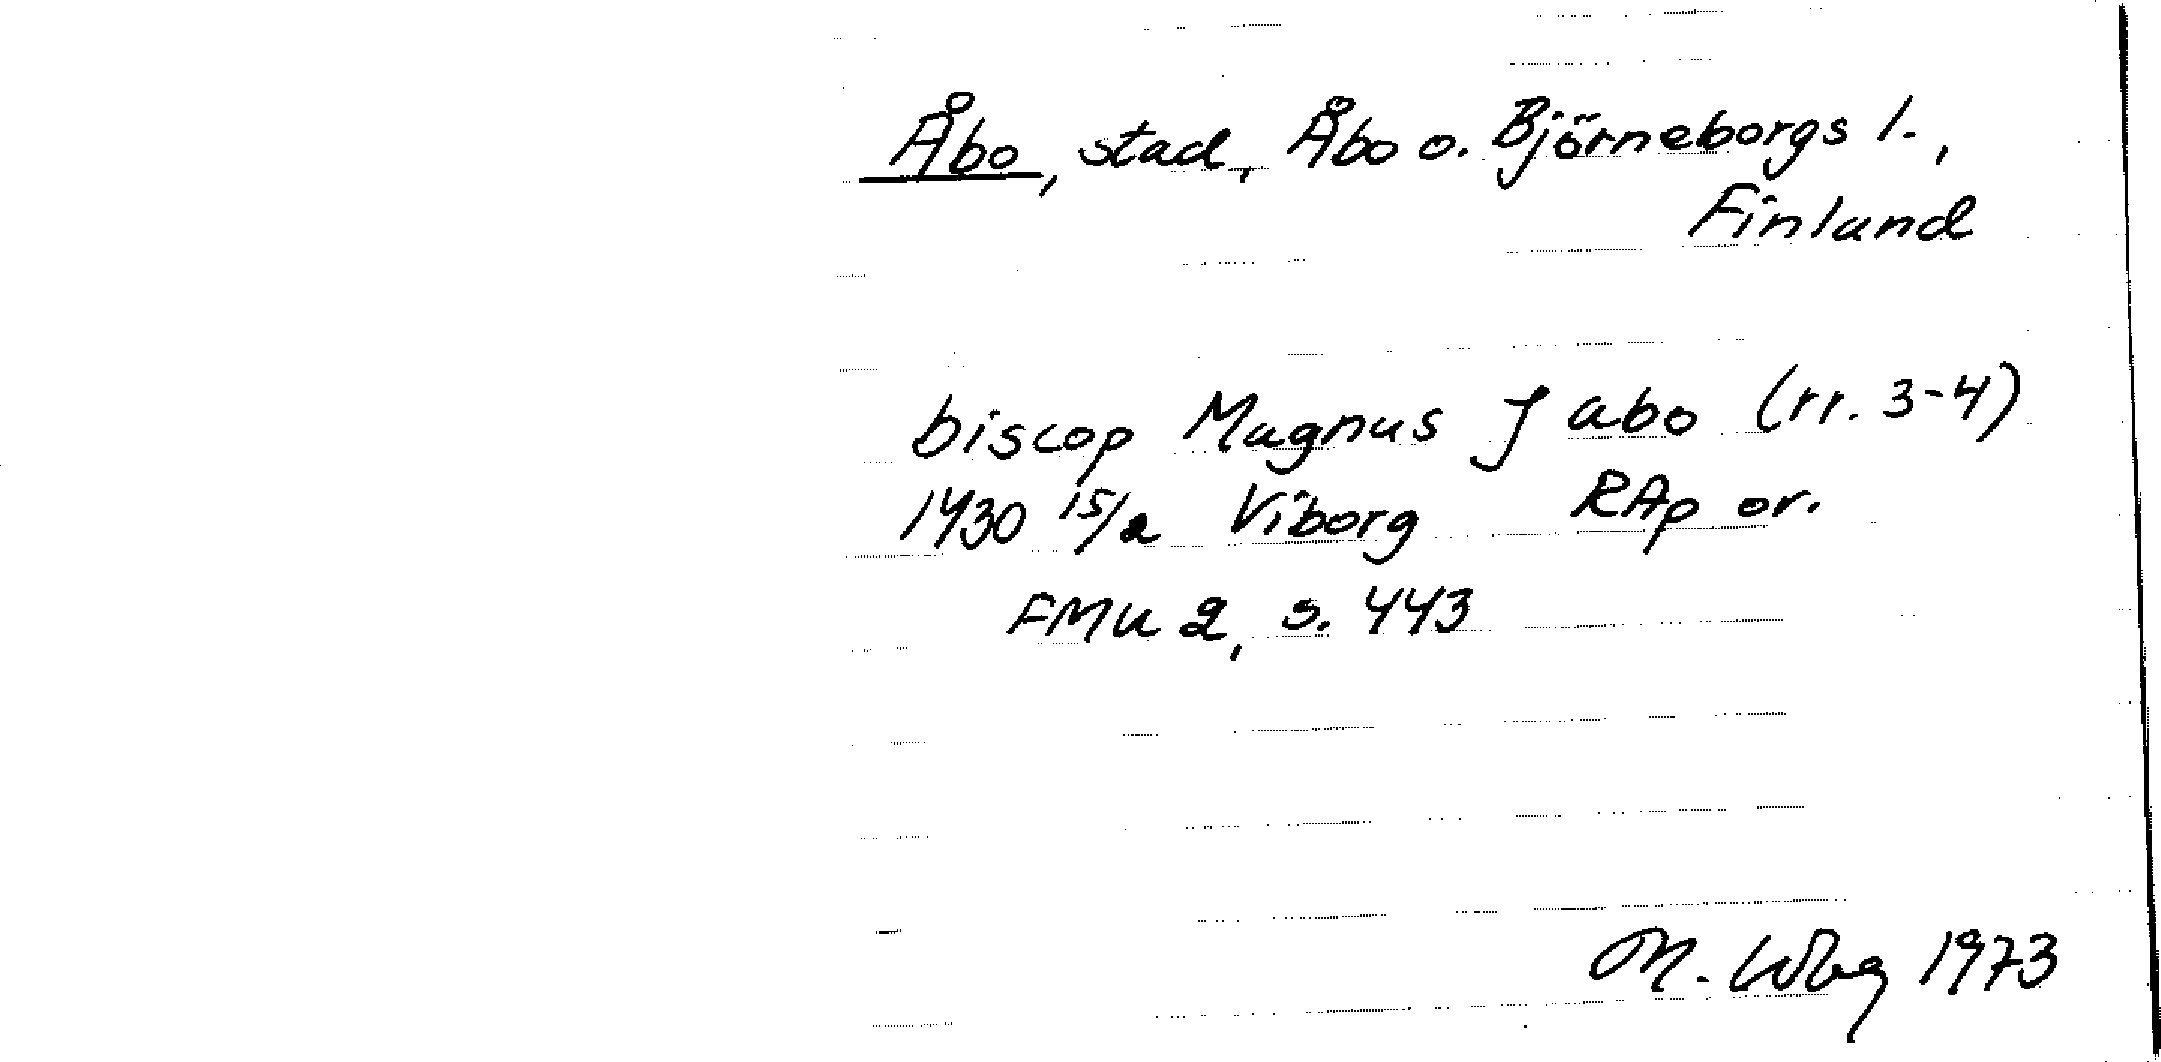 Åbo, stad, Åbo o. Björneborgs l.,
Finland
biscop Magnus J abo (rr. 3-4)
1430 15/2 Viborg RAp or.
FMU 2, s. 443
M. Wbg 1973